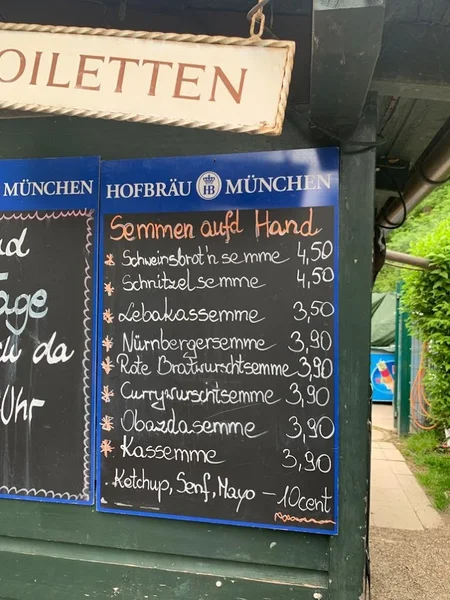 OILETTEN
MÜNCHEN
da
Uhr
HOFBRÄU HB MÜNCHEN
Semmen aufd Hand
Schweinsbrot'n semme 4,50
Schnitzel semme 4,50
Lebakassemme 3,50
Nürnbergersemme 3,90
Rote Bratwurschtsemme 3,90
Currywurschtsemme 3,90
Obazdasemme 3,90
Kassemme 3,90
Ketchup, Senf, Mayo - 10cent